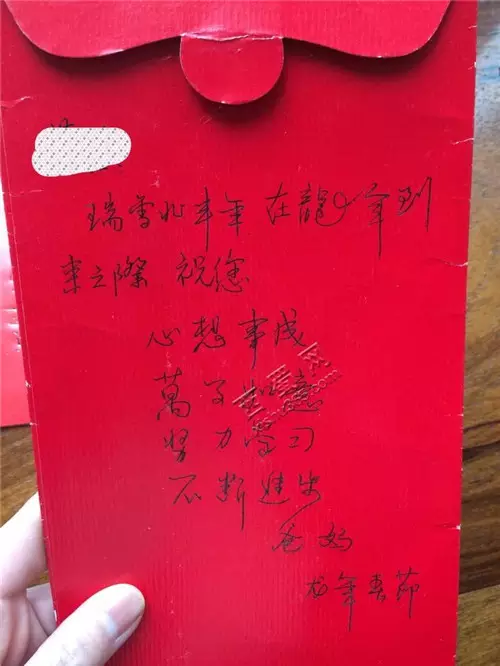 瑞雪兆丰年 在龍年到
来之際 祝您
心想事成
萬事如意
努力学习
不断進步
爸妈
龙年春节